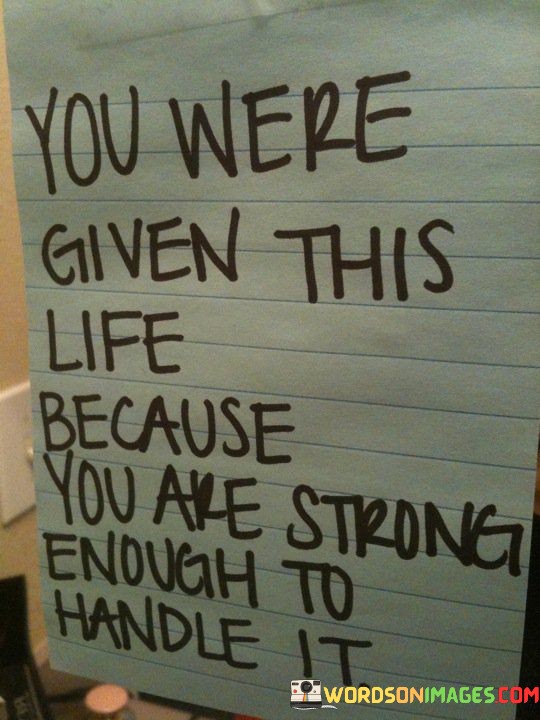 YOU WERE
GIVEN THIS
LIFE
BECAUSE
YOU ARE STRONG
ENOUGH TO
HANDLE IT.
WORDSONIMAGES.COM